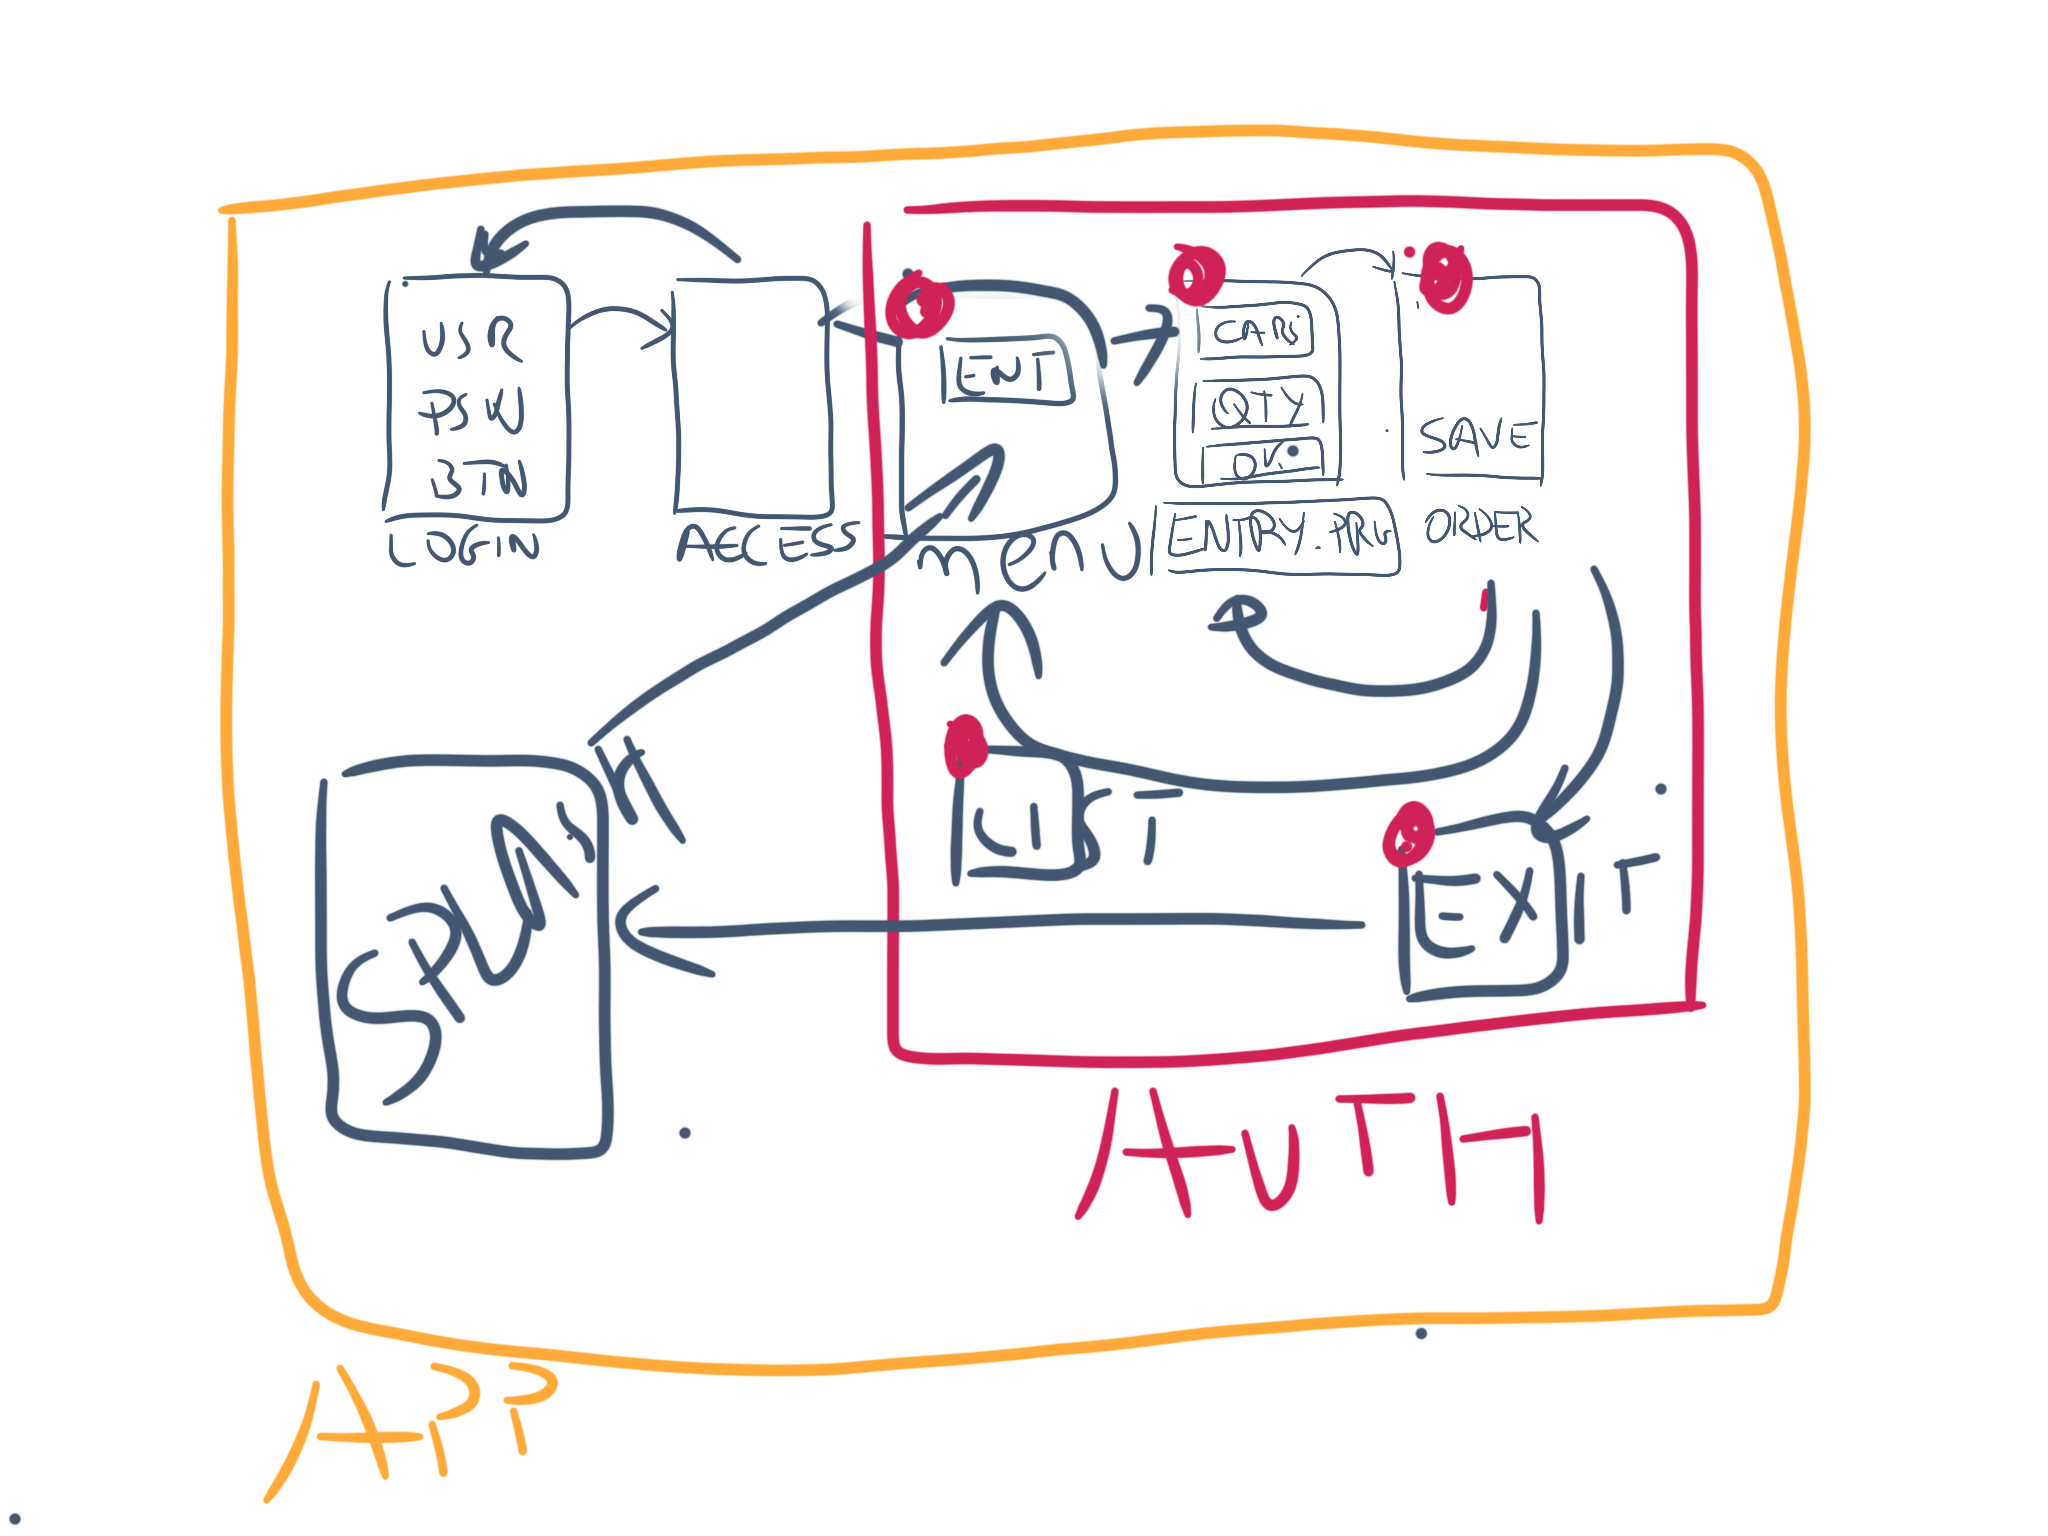 USR
PSW
BTN
LOGIN
ACCESS
ENT
menu
CARS
QTY
OK
ENTRY.PRG
SAVE
ORDER
LIST
EXIT
SPLASH
AUTH
APP